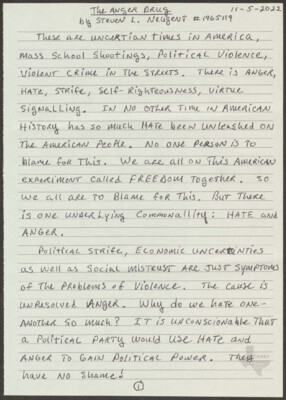 The Anger Drug 11-5-2022
by Steven L. Neugent #1965119
These are uncertian times in America,
Mass School Shootings, Political Violence,
Violent Crime in the Streets. There is Anger,
Hate, Strife, Self-Righteowness, Virtue
Signalling. In no other time in American
History has so much Hate been unleashed on
the American People. No one person is to
blame for this. We are all on this American
experiment called FREEDOM together. So
we all are to Blame for this. But there
is one underlying commonallity: Hate and
Anger.
Political Strife, Economic Uncertenties
as well as Social Mistrust are just symptoms
of the problems of Violence. The cause is
unresolved Anger. Why do we hate one-
another so much? It is unconscionable that
a Political Party would use Hate and
Anger to gain Political Power. They
have no shame!
1